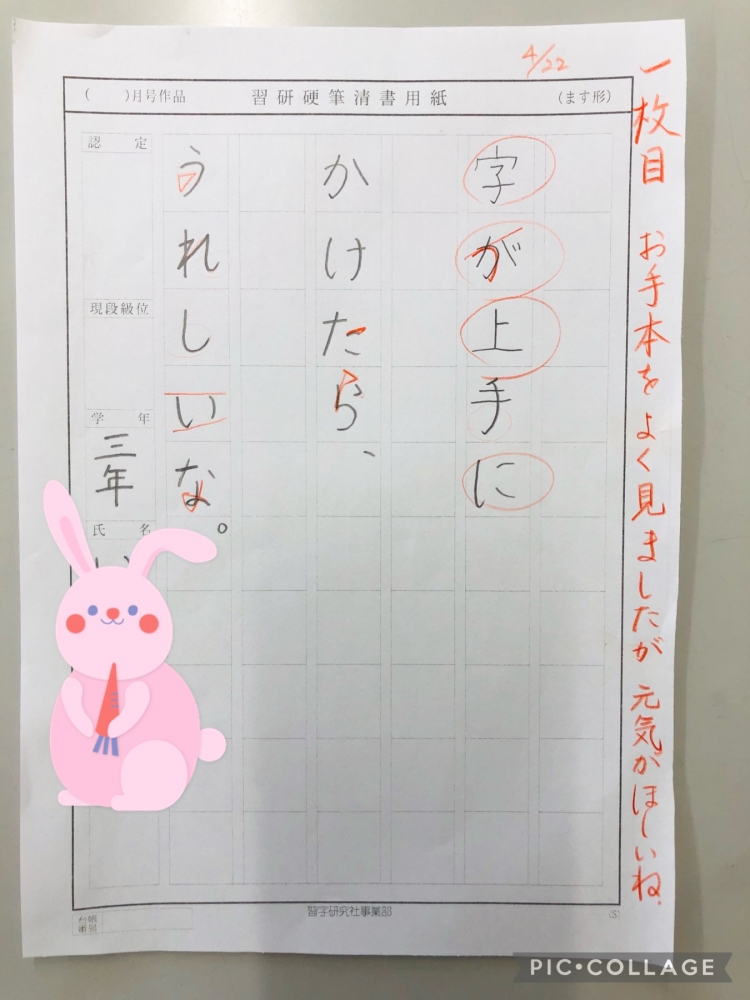 4/22
一枚目 お手本をよく見ましたが 元気がほしいね。
( )月号作品 習研硬筆清書用紙 (ます形)
字が上手に
かけたら、
うれしいな。
認定
現段級位
学年
三年
氏名
習字研究社事業部
(S)
PIC•COLLAGE